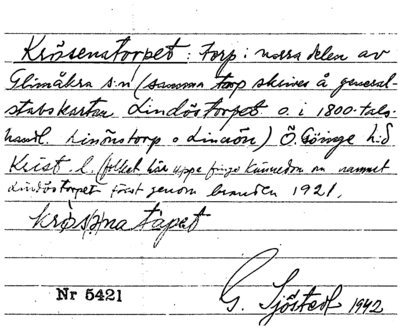 Krösenstorpet: torp i norra delen av
Glimåkra s:n (samma torp skrives å general-
stabskartan Lindöstorpet o. i 1800-tals-
handl. Linönstorp o Lincön) Ö. Göinge h:d
Krist. l. (folket här uppe fingo kännedom om namnet
Lindöstorpet först genom branden 1921.
Nr 5421
G. Sjöstedt 1942